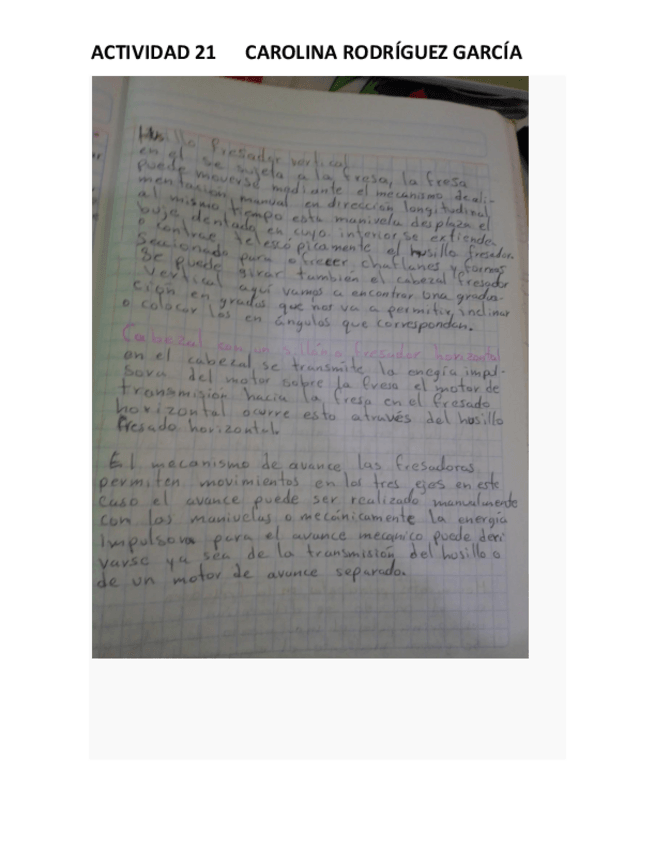 ACTIVIDAD 21 CAROLINA RODRÍGUEZ GARCÍA
Husillo fresador vertical
en el se sujeta a la fresa, la fresa
puede moverse mediante el mecanismo de ali-
mentación manual en dirección longitudinal
al mismo tiempo esta manivela desplaza el
buje dentado en cuyo interior se extiende
o contrae telescópicamente el husillo fresador.
para ofrecer chaflanes y formas
Se puede girar también el cabezal fresador
vertical aquí vamos a encontrar una gradua-
ción en grados que nos va a permitir, inclinar
o colocar los en ángulos que correspondan.
Cabezal con un fresador horizontal
en el cabezal se transmite la enegía impul-
sora del motor sobre la fresa el motor de
transmisión hacia la fresa en el fresado
horizontal ocurre esto através del husillo
fresado horizontal.
El mecanismo de avance las fresadoras
permiten movimientos en los tres ejes en este
caso el avance puede ser realizado manualmente
con las manivelas o mecánicamente la energía
impulsora para el avance mecánico puede deri
varse ya sea de la transmisión del husillo o
de un motor de avance separado.